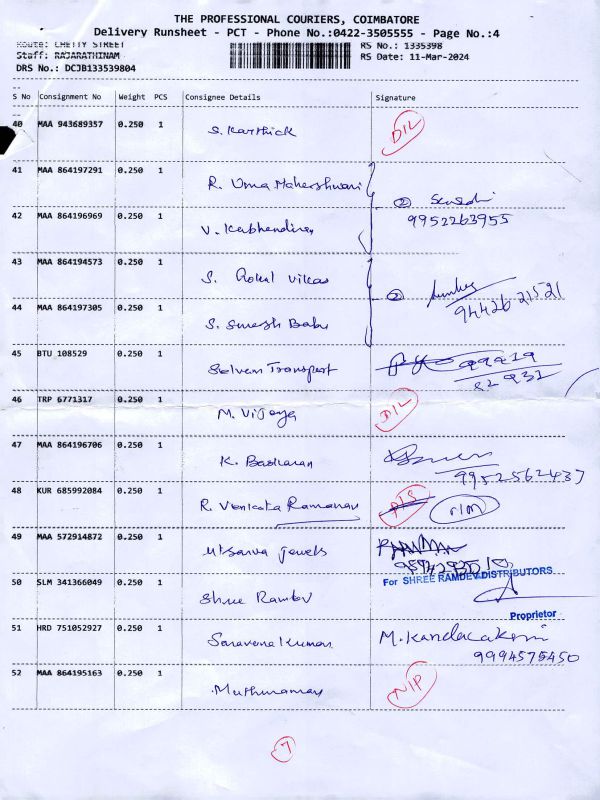 THE PROFESSIONAL COURIERS, COIMBATORE
Delivery Runsheet - PCT - Phone No.:0422-3505555 - Page No.:4
Route: CHETTY STREET RS No.: 1335398
Staff: RAJARATHINAM RS Date: 11-Mar-2024
DRS No.: DCJB133539804
S No Consignment No Weight PCS Consignee Details Signature
40 MAA 943689357 0.250 1 S. Karthick
41 MAA 864197291 0.250 1 R. Uma Maheshwari
② 9952263955
42 MAA 864196969 0.250 1 V.
43 MAA 864194573 0.250 1 S. Gokul Vikas
② 94426 21521
44 MAA 864197305 0.250 1 S. Suresh Babu
45 BTU 108529 0.250 1 Selvam Transport 99419
46 TRP 6771317 0.250 1 M. Vijaya
47 MAA 864196706 0.250 1 K. Baskaran
9952562437
48 KUR 685992084 0.250 1 R. Venkata Ramanan
49 MAA 572914872 0.250 1 Jewels
For SHREE RAMDEV DISTRIBUTORS
50 SLM 341366049 0.250 1 Shree Ramdev
Proprietor
51 HRD 751052927 0.250 1 Saravana Kumar M.
9994575450
52 MAA 864195163 0.250 1 NIP
7